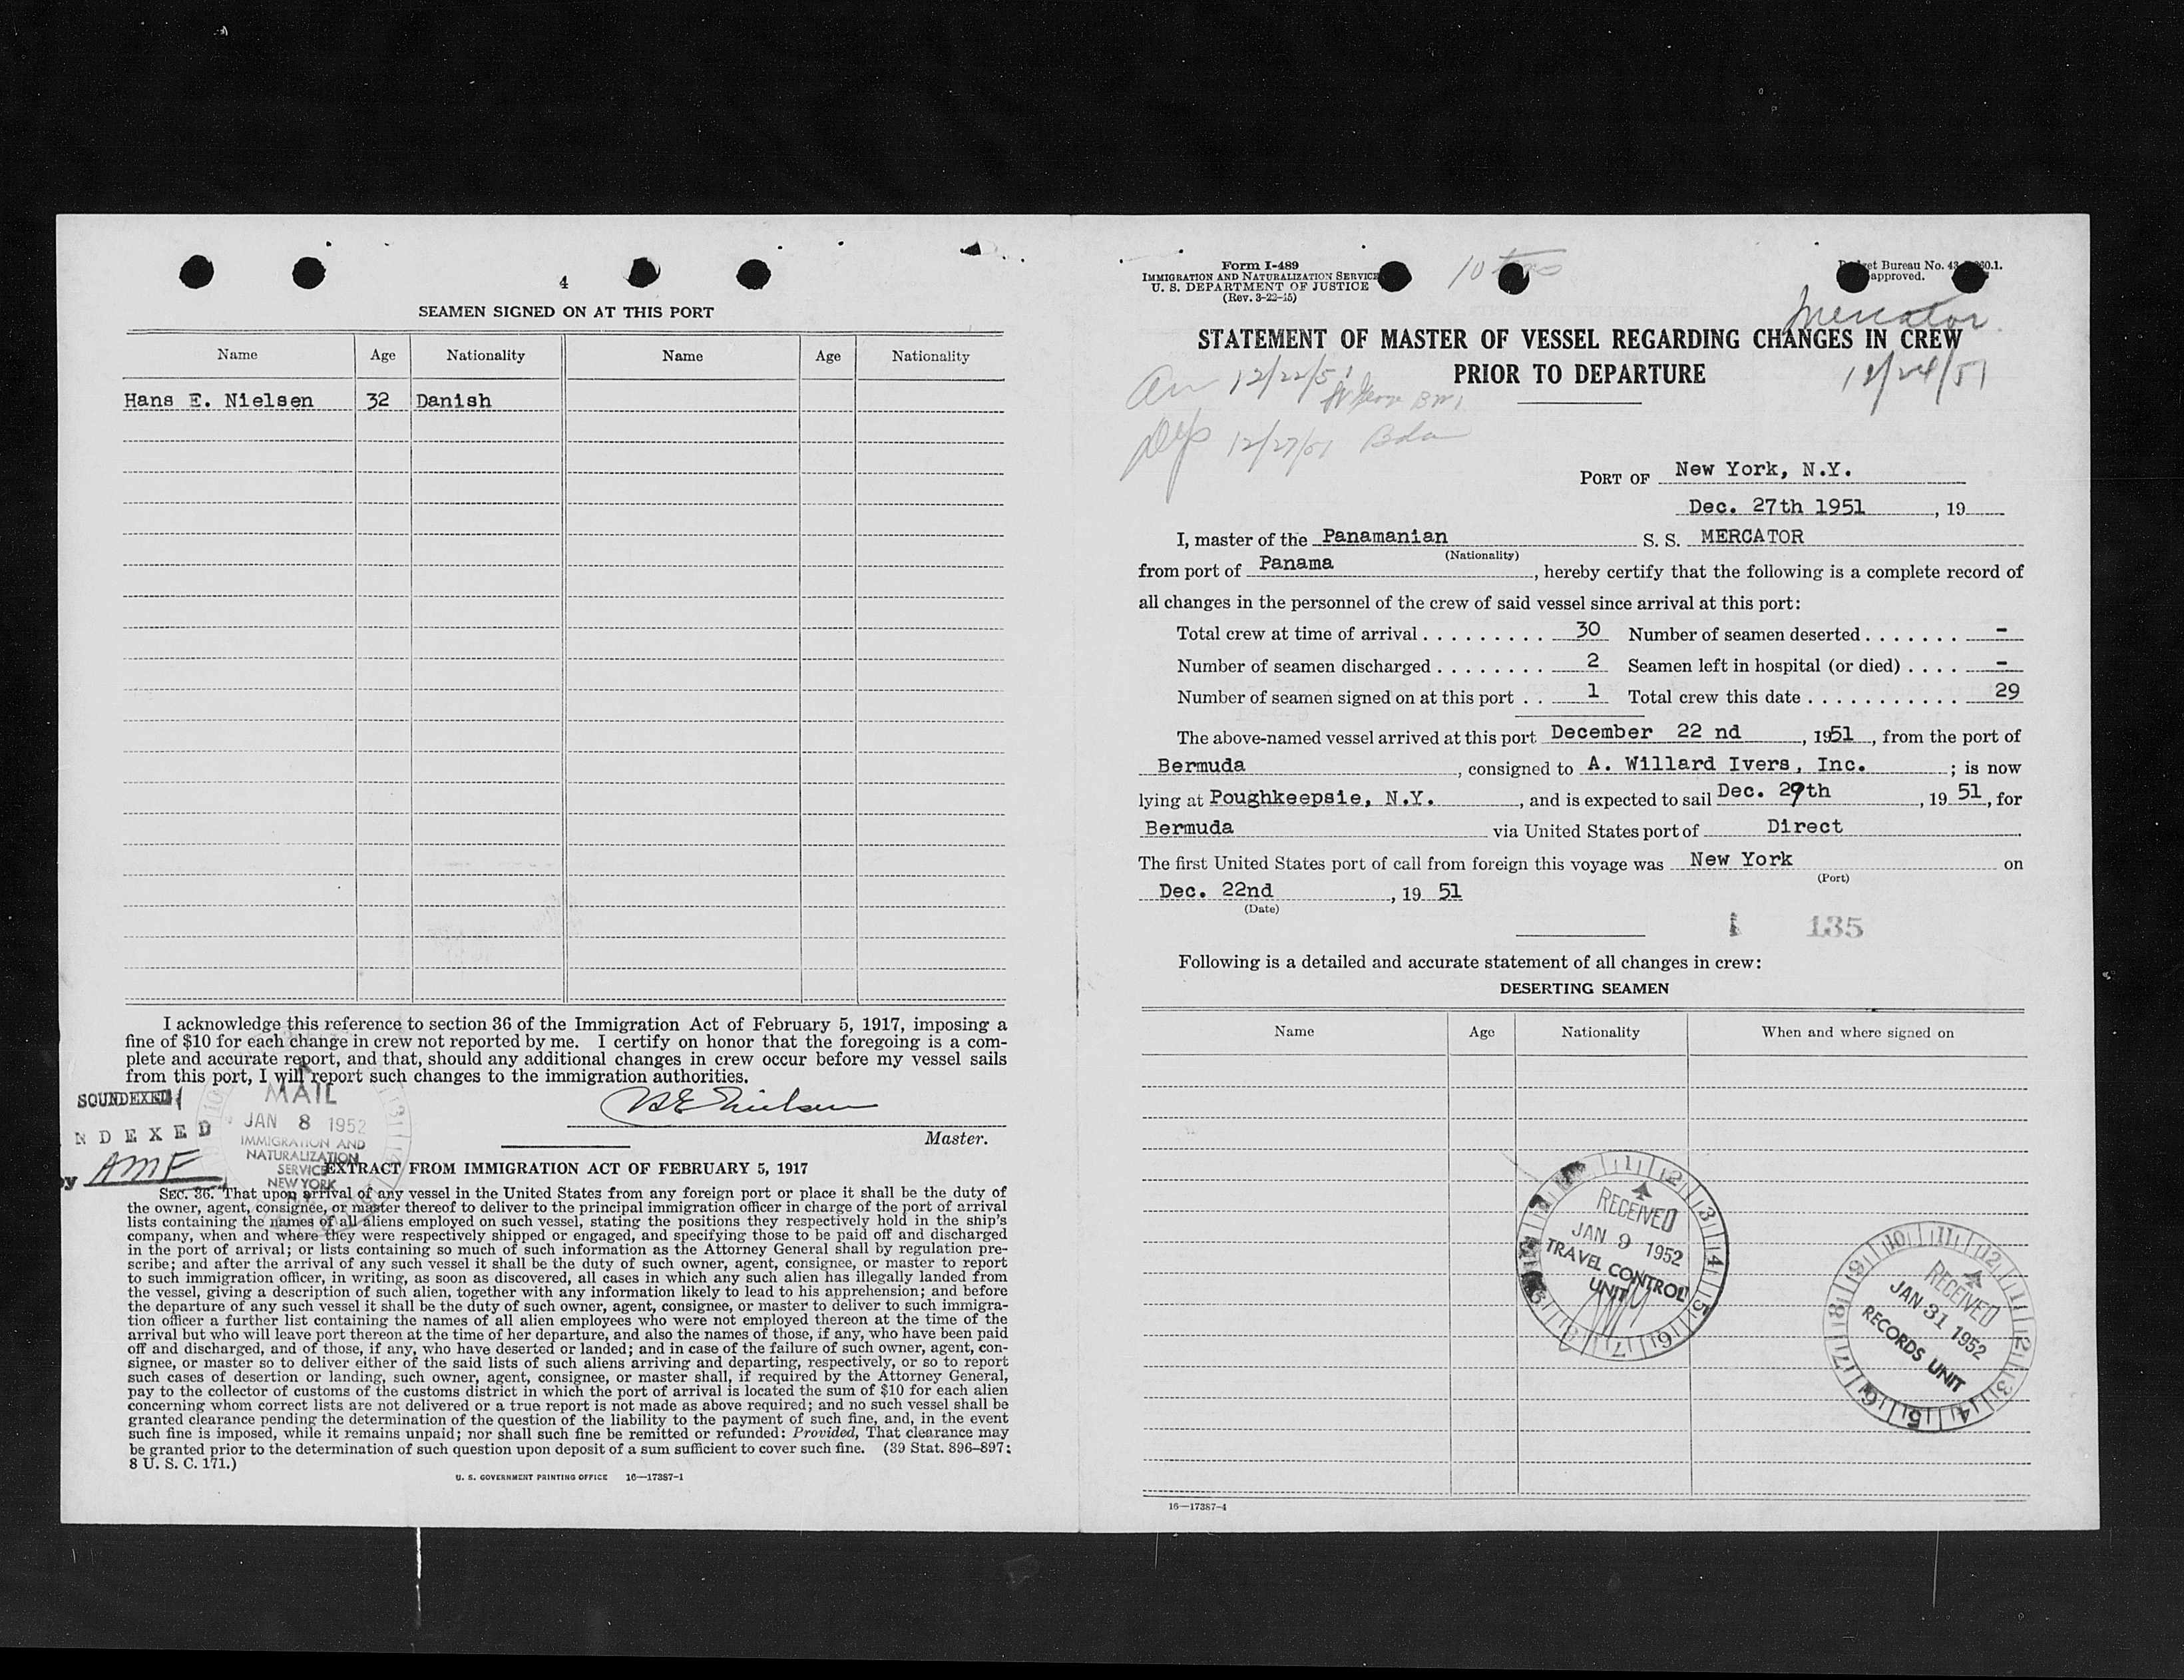 4
SEAMEN SIGNED ON AT THIS PORT
Name Age Nationality Name Age Nationality
Hans E. Nielsen 32 Danish
I acknowledge this reference to section 36 of the Immigration Act of February 5, 1917, imposing a
fine of $10 for each change in crew not reported by me. I certify on honor that the foregoing is a com-
plete and accurate report, and that, should any additional changes in crew occur before my vessel sails
from this port, I will report such changes to the immigration authorities.
SOUNDEXED
NDEXED
by AMF
MAIL
JAN 8 1952
IMMIGRATION AND
NATURALIZATION
SERVICE
NEW YORK
H E Nielsen
Master.
EXTRACT FROM IMMIGRATION ACT OF FEBRUARY 5, 1917
SEC. 36. That upon arrival of any vessel in the United States from any foreign port or place it shall be the duty of
the owner, agent, consignee, or master thereof to deliver to the principal immigration officer in charge of the port of arrival
lists containing the names of all aliens employed on such vessel, stating the positions they respectively hold in the ship's
company, when and where they were respectively shipped or engaged, and specifying those to be paid off and discharged
in the port of arrival; or lists containing so much of such information as the Attorney General shall by regulation pre-
scribe; and after the arrival of any such vessel it shall be the duty of such owner, agent, consignee, or master to report
to such immigration officer, in writing, as soon as discovered, all cases in which any such alien has illegally landed from
the vessel, giving a description of such alien, together with any information likely to lead to his apprehension; and before
the departure of any such vessel it shall be the duty of such owner, agent, consignee, or master to deliver to such immigra-
tion officer a further list containing the names of all alien employees who were not employed thereon at the time of the
arrival but who will leave port thereon at the time of her departure, and also the names of those, if any, who have been paid
off and discharged, and of those, if any, who have deserted or landed; and in case of the failure of such owner, agent, con-
signee, or master so to deliver either of the said lists of such aliens arriving and departing, respectively, or so to report
such cases of desertion or landing, such owner, agent, consignee, or master shall, if required by the Attorney General,
pay to the collector of customs of the customs district in which the port of arrival is located the sum of $10 for each alien
concerning whom correct lists are not delivered or a true report is not made as above required; and no such vessel shall be
granted clearance pending the determination of the question of the liability to the payment of such fine, and, in the event
such fine is imposed, while it remains unpaid; nor shall such fine be remitted or refunded: Provided, That clearance may
be granted prior to the determination of such question upon deposit of a sum sufficient to cover such fine. (39 Stat. 896–897;
8 U. S. C. 171.)
U. S. GOVERNMENT PRINTING OFFICE 16—17387-1
Form I-489
IMMIGRATION AND NATURALIZATION SERVICE
U. S. DEPARTMENT OF JUSTICE
(Rev. 3-22-45)
10
et Bureau No. 43 60.1.
approved.
Mercator
STATEMENT OF MASTER OF VESSEL REGARDING CHANGES IN CREW
PRIOR TO DEPARTURE
12/24/51
Arr 12/22/51
Dep 12/27/51 Bda
PORT OF New York, N.Y.
Dec. 27th 1951, 19
I, master of the Panamanian S. S. MERCATOR
(Nationality)
from port of Panama, hereby certify that the following is a complete record of
all changes in the personnel of the crew of said vessel since arrival at this port:
Total crew at time of arrival . . . . . . . . . 30 Number of seamen deserted . . . . . . . -
Number of seamen discharged . . . . . . . . 2 Seamen left in hospital (or died) . . . . -
Number of seamen signed on at this port . . 1 Total crew this date . . . . . . . . . . . 29
The above-named vessel arrived at this port December 22 nd, 1951, from the port of
Bermuda, consigned to A. Willard Ivers, Inc.; is now
lying at Poughkeepsie, N.Y., and is expected to sail Dec. 29th, 19 51, for
Bermuda via United States port of Direct
The first United States port of call from foreign this voyage was New York on
(Port)
Dec. 22nd, 19 51
(Date)
135
Following is a detailed and accurate statement of all changes in crew:
DESERTING SEAMEN
Name Age Nationality When and where signed on
RECEIVED
JAN 9 1952
TRAVEL CONTROL
UNIT
RECEIVED
JAN 31 1952
RECORDS UNIT
16—17387-4